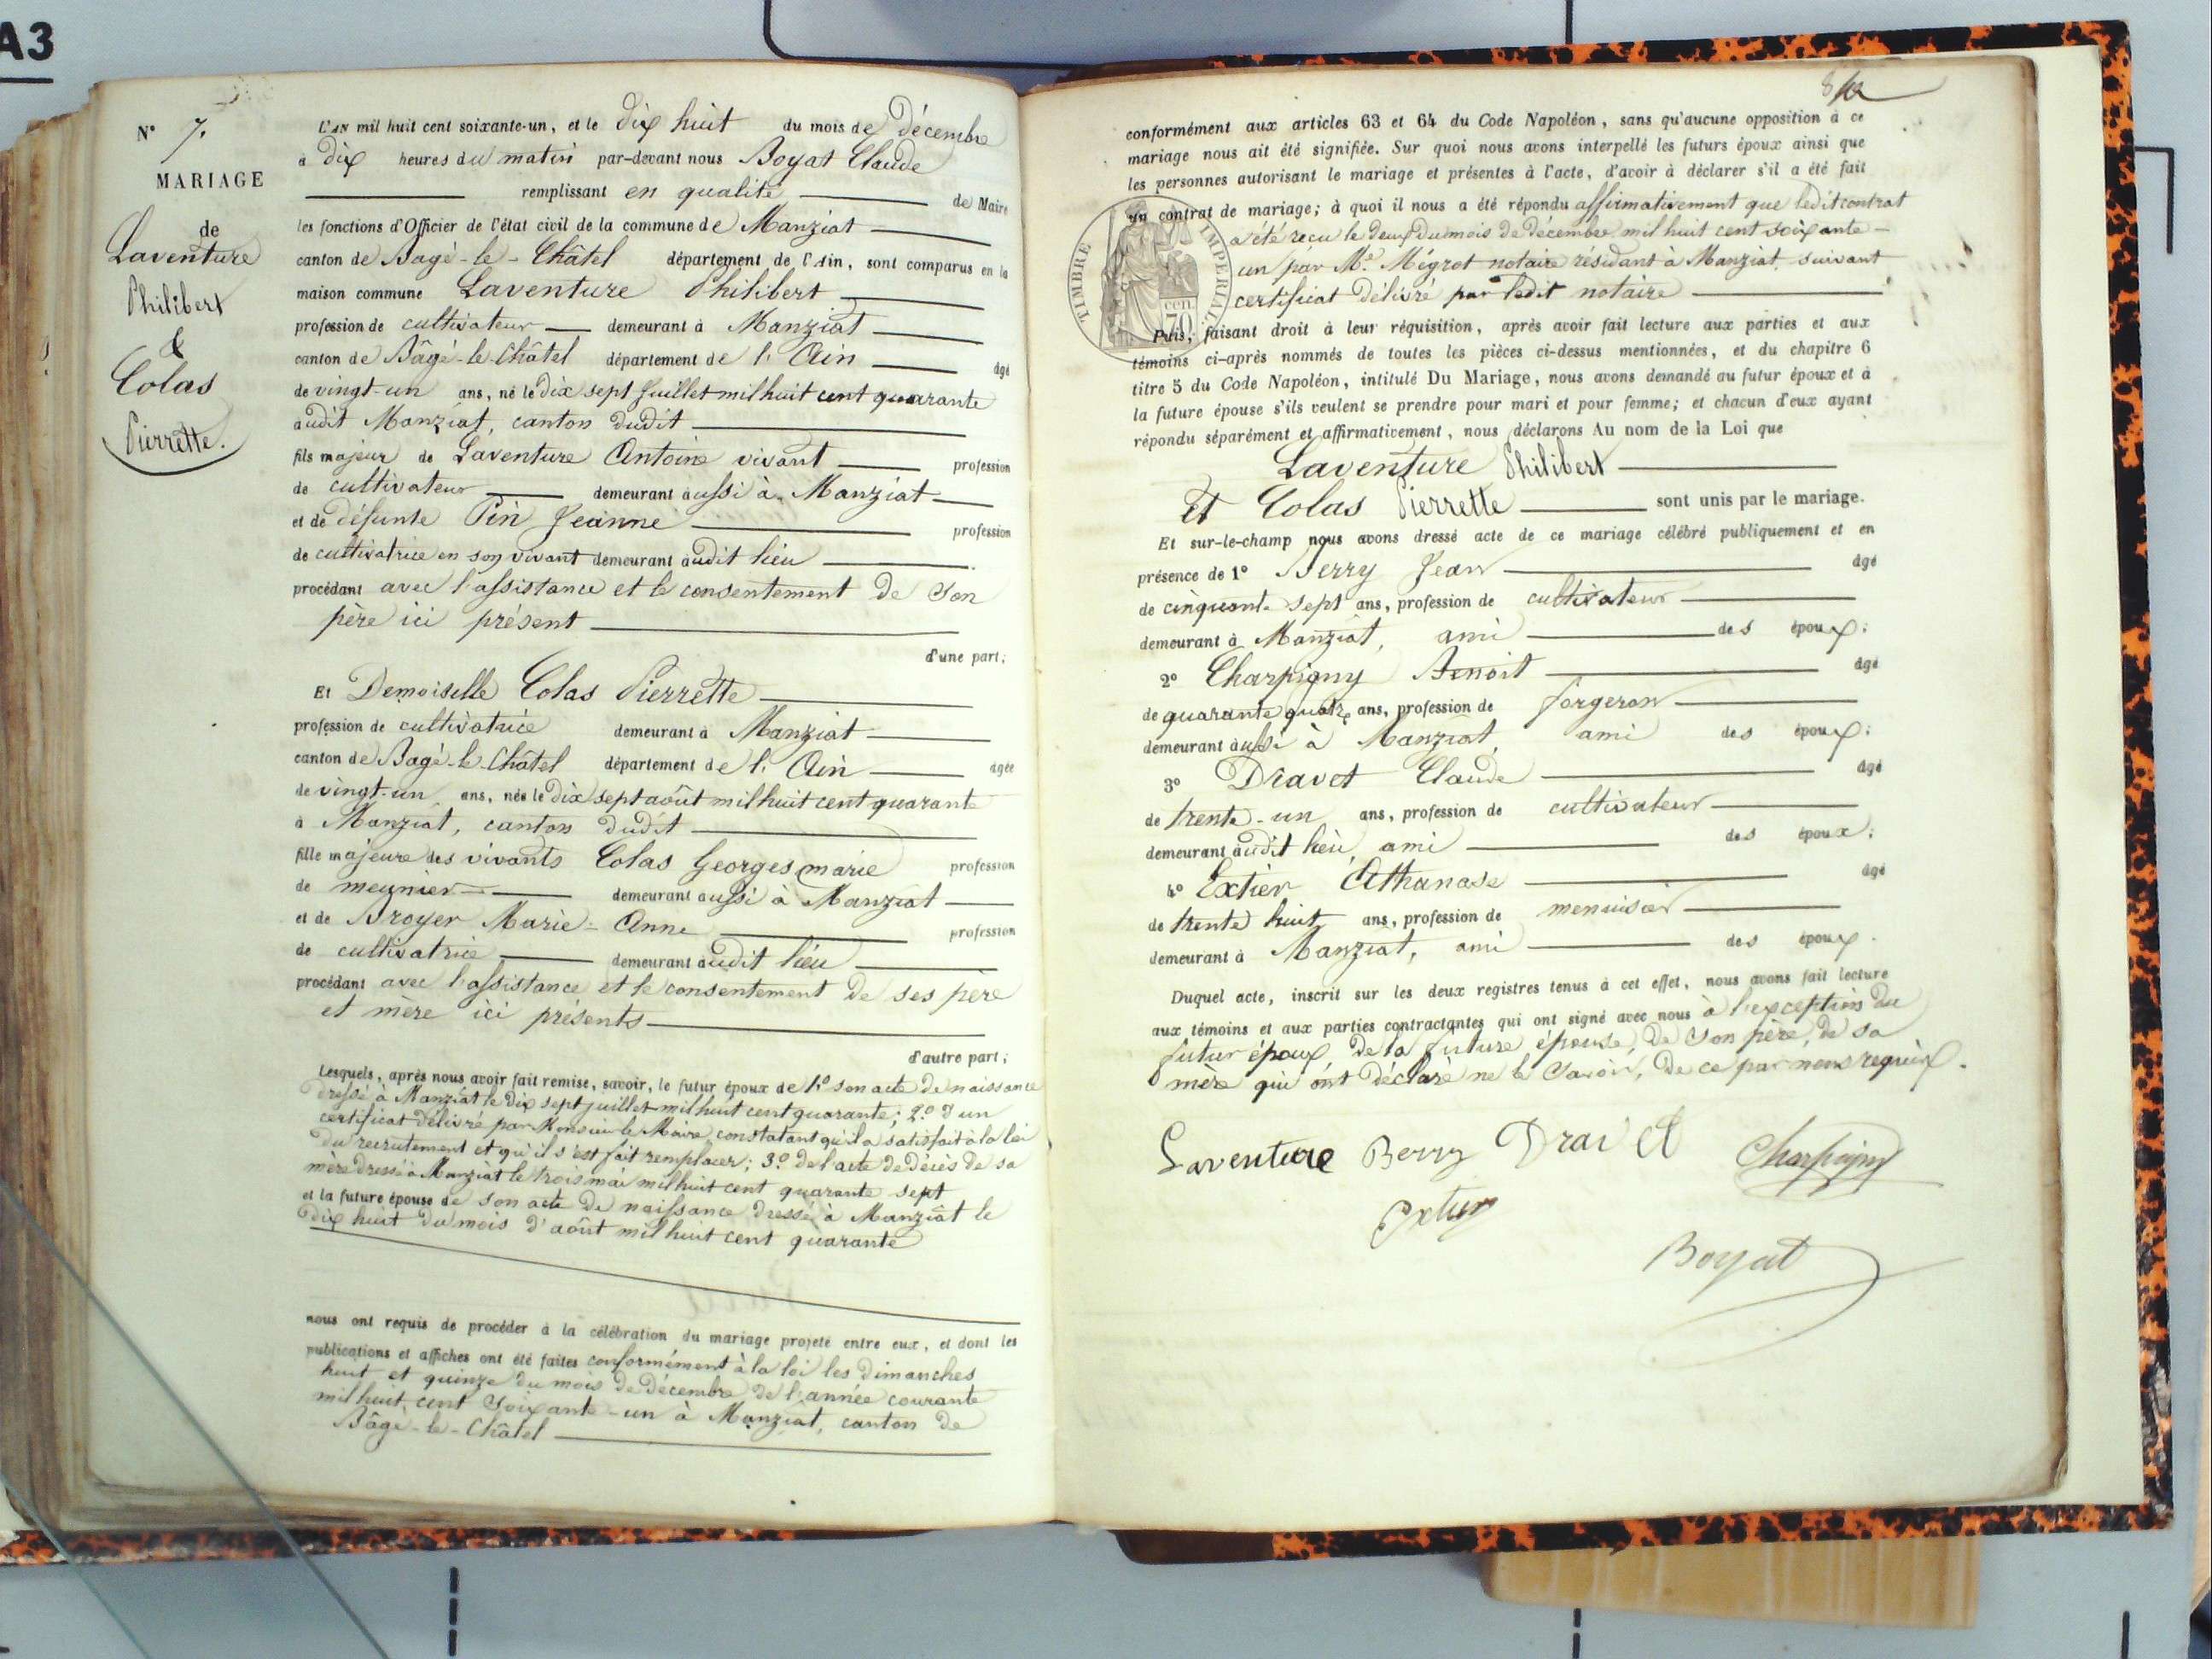 A3
N° 7.
MARIAGE
de
Laventure
Philibert
&
Colas
Pierrette.
L'AN mil huit cent soixante-un, et le dix huit du mois de décembre
à dix heures du matin par-devant nous Boyat Claude
remplissant en qualité de Maire
les fonctions d'Officier de l'état civil de la commune de Manziat
canton de Bagé-le-Châtel département de l'Ain, sont comparus en la
maison commune Laventure Philibert
profession de cultivateur demeurant à Manziat
canton de Bâgé-le-Châtel département de l'Ain âgé
de vingt-un ans, né le dix sept juillet mil huit cent quarante
audit Manziat, canton dudit
fils majeur de Laventure Antoine vivant profession
de cultivateur demeurant aussi à Manziat
et de défunte Pin Jeanne profession
de cultivatrice en son vivant demeurant audit lieu
procédant avec l'assistance et le consentement de son
père ici présent
d'une part;
Et Demoiselle Colas Pierrette
profession de cultivatrice demeurant à Manziat
canton de Bagé-le-Châtel département de l'Ain agée
de vingt-un ans, née le dix sept août mil huit cent quarante
à Manziat, canton dudit
fille majeure des vivants Colas Georges marie profession
de meunier demeurant aussi à Manziat
et de Broyer Marie-Anne profession
de cultivatrice demeurant audit lieu
procédant avec l'assistance et le consentement de ses père
et mère ici présents
d'autre part;
Lesquels, après nous avoir fait remise, savoir, le futur époux de 1° son acte de naissance
dressé à Manziat le dix sept juillet mil huit cent quarante; 2° d'un
certificat délivré par Monsieur le Maire constatant qu'il a satisfait à la loi
du recrutement et qu'il s'est fait remplacer; 3° de l'acte de décès de sa
mère dressé à Manziat le trois mai mil huit cent quarante sept
et la future épouse de son acte de naissance dressé à Manziat le
dix huit du mois d'août mil huit cent quarante
nous ont requis de procéder à la célébration du mariage projeté entre eux, et dont les
publications et affiches ont été faites conformément à la loi les dimanches
huit et quinze du mois de décembre de l'année courante
mil huit cent soixante-un à Manziat, canton de
Bâgé-le-Châtel
conformément aux articles 63 et 64 du Code Napoléon, sans qu'aucune opposition à ce
mariage nous ait été signifiée. Sur quoi nous avons interpellé les futurs époux ainsi que
les personnes autorisant le mariage et présentes à l'acte, d'avoir à déclarer s'il a été fait
un contrat de mariage; à quoi il nous a été répondu affirmativement que ledit contrat
a été reçu le deux du mois de décembre mil huit cent soixante-
un par Me. Mégrot notaire résidant à Manziat, suivant
certificat délivré par ledit notaire
TIMBRE IMPERIAL
cen
70
Puis, faisant droit à leur réquisition, après avoir fait lecture aux parties et aux
témoins ci-après nommés de toutes les pièces ci-dessus mentionnées, et du chapitre 6
titre 5 du Code Napoléon, intitulé Du Mariage, nous avons demandé au futur époux et à
la future épouse s'ils veulent se prendre pour mari et pour femme; et chacun d'eux ayant
répondu séparément et affirmativement, nous déclarons Au nom de la Loi que
Laventure Philibert
Et Colas Pierrette sont unis par le mariage.
Et sur-le-champ nous avons dressé acte de ce mariage célébré publiquement et en
présence de 1° Berry Jean âgé
de cinquante sept ans, profession de cultivateur
demeurant à Manziat, ami des époux;
2° Charpigny Benoit âgé
de quarante quatre ans, profession de forgeron
demeurant aussi à Manziat, ami des époux;
3° Dravet Claude âgé
de trente-un ans, profession de cultivateur
demeurant audit lieu, ami des époux;
4° Extier Athanase âgé
de trente huit ans, profession de menuisier
demeurant à Manziat, ami des époux.
Duquel acte, inscrit sur les deux registres tenus à cet effet, nous avons fait lecture
aux témoins et aux parties contractantes qui ont signé avec nous à l'exception du
futur époux, de la future épouse, de son père, de sa
mère qui ont déclaré ne le savoir, de ce par nous requis.
Laventure Berry Dravet Charpigny
Extier
Boyat